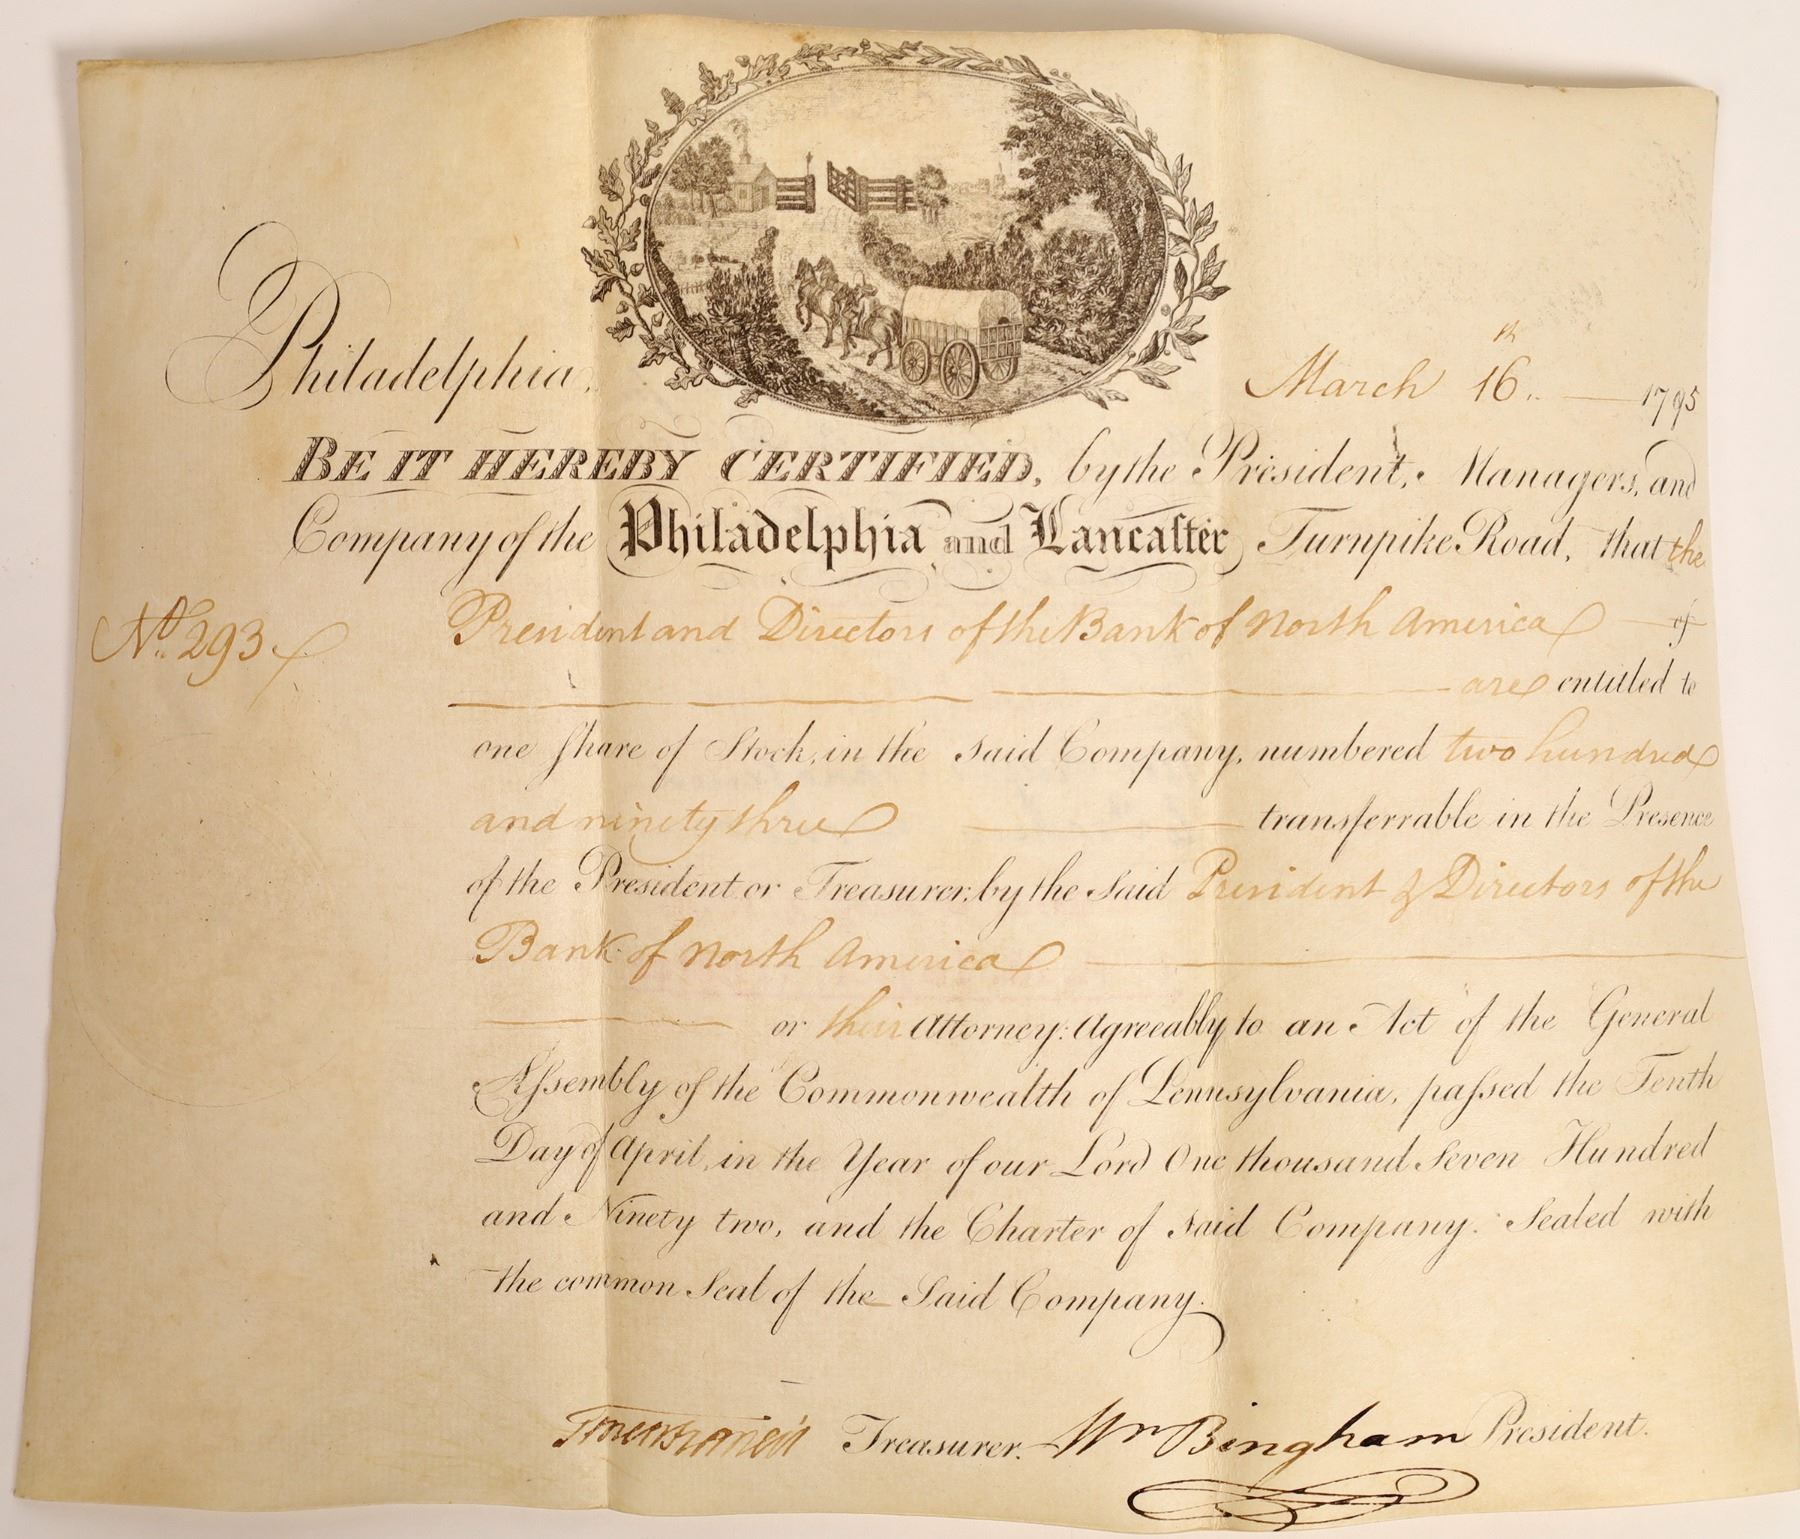 Philadelphia, March 16.th 1795
BE IT HEREBY CERTIFIED, by the President, Managers, and
Company of the Philadelphia and Lancaſter Turnpike Road, that the
No. 293. President and Directors of the Bank of North America of
are entitled to
one Share of Stock, in the said Company, numbered two hundred
and ninety three transferrable in the Presence
of the President or Treasurer, by the Said President & Directors of the
Bank of North America
or their Attorney: Agreeably to an Act of the General
Aſsembly of the Commonwealth of Pennsylvania, paſsed the Tenth
Day of April, in the Year of our Lord One thousand Seven Hundred
and Ninety two, and the Charter of said Company. Sealed with
the common Seal of the Said Company.
Treasurer. Wm Bingham President.